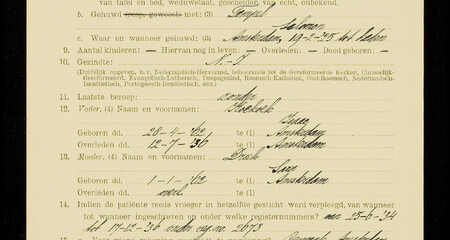 van tafel en bed, weduwstaat, gescheiden van echt, onbekend.
b. Gehuwd (resp. geweest) met: (3) Tempel
Salomon
c. Waar en wanneer gehuwd: (3) Amsterdam, 19-2-'35 tot heden
9. Aantal kinderen: — Hiervan nog in leven: — Overleden: — Dood geboren: —
10. Gezindte: N-I
(Duidelijk opgeven, b.v. Nederlandsch-Hervormd, behoorende tot de Gereformeerde Kerken, Christelijk-
Gereformeerd, Evangelisch-Luthersch, Doopsgezind, Roomsch-Katholiek, Oud-Roomsch, Nederlandsch-
Israëlietisch, Portugeesch-Israëlietisch, enz.)
11. Laatste beroep: zonder
12. Vader, (4) Naam en voornamen: Koekoek
Isaac
Geboren dd. 28-4-'62 te (1) Amsterdam
Overleden dd. 12-7-'36 te (1) Amsterdam
13. Moeder, (4) Naam en voornamen: Druk
Sara
Geboren dd. 1-1-'62 te (1) Amsterdam
Overleden dd. te (1)
14. Indien de patiënte reeds vroeger in hetzelfde gesticht werd verpleegd, van wanneer
tot wanneer ingeschreven en onder welke registernummers? van 25-6-'34
tot 17-12-'36 onder reg no 2673